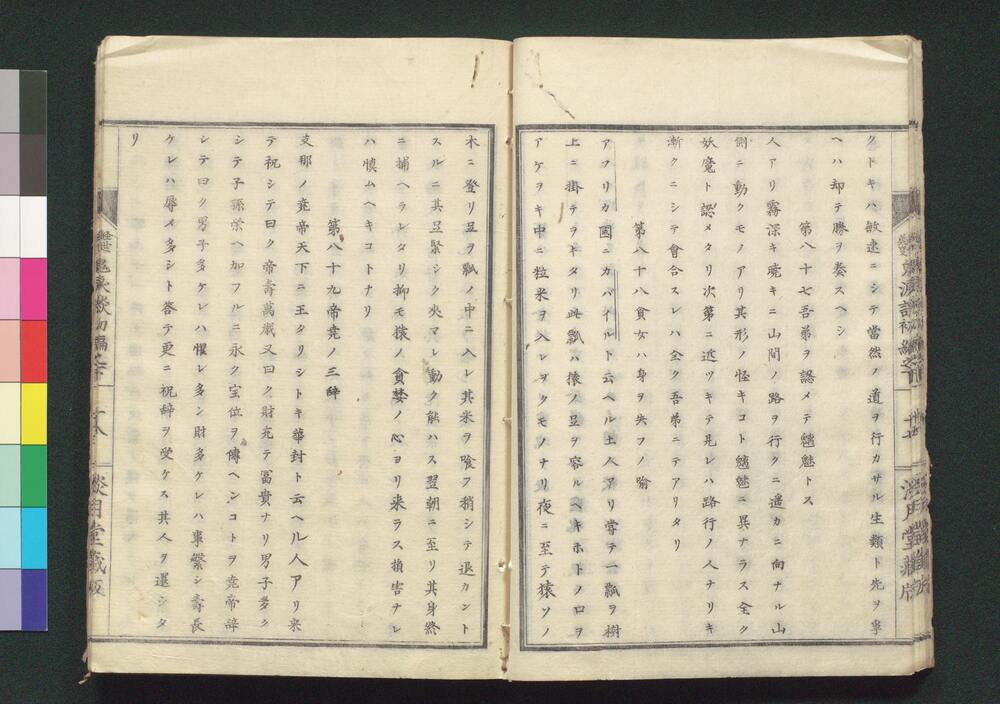 クトキハ敏速ニシテ當然ノ道ヲ行カサル生類ト先ヲ爭
ヘハ却テ勝ヲ奏スヘシ
第八十七吾弟ヲ認メテ魑魅トス
人アリ霧深キ暁キニ山間ノ路ヲ行クニ遥カニ向ナル山
側ニ動クモノアリ其形ノ怪キコト魑魅ニ異ナラス全ク
妖魔ト認メタリ次第ニ近ツキテ見レハ路行ノ人ナリキ
漸クニシテ會合スレハ全ク吾弟ニテアリタリ
第八十八貪女ハ身ヲ失フノ喻
アフリカ國ニカバイルト云ヘル土人アリ嘗テ一瓢ヲ樹
上ニ掛テヲキタリ此瓢ハ猿ノ豆ヲ容ルヘキホトノ口ヲ
アケヲキ中ニ粒米ヲ入レヲクモノナリ夜ニ至テ猿ソノ
木ニ登リ豆ヲ瓢ノ中ニ入レ其米ヲ喰フ稍シテ退カント
スルニ其豆緊シク夾マレ動ク能ハス翌朝ニ至リ其身終
ニ捕ヘラレタリ抑モ猿ノ貪婪ノ心ヨリ来ラス損害ナレ
ハ慎ムヘキコトナリ
第八十九帝尭ノ三辞
支那ノ尭帝天下ニ王タリシトキ華封ト云ヘル人アリ来
テ祝シテ曰ク帝壽萬歳又曰ク財充テ冨貴ナリ男子多ク
シテ子孫榮ヘ加フルニ永ク宝位ヲ傳ヘンコトヲ尭帝辞
シテ曰ク男子多ケレハ懼レ多シ財多ケレハ事繁シ壽長
ケレハ辱メ多シト答テ更ニ祝辞ヲ受ケス其人ヲ還シタ
リ